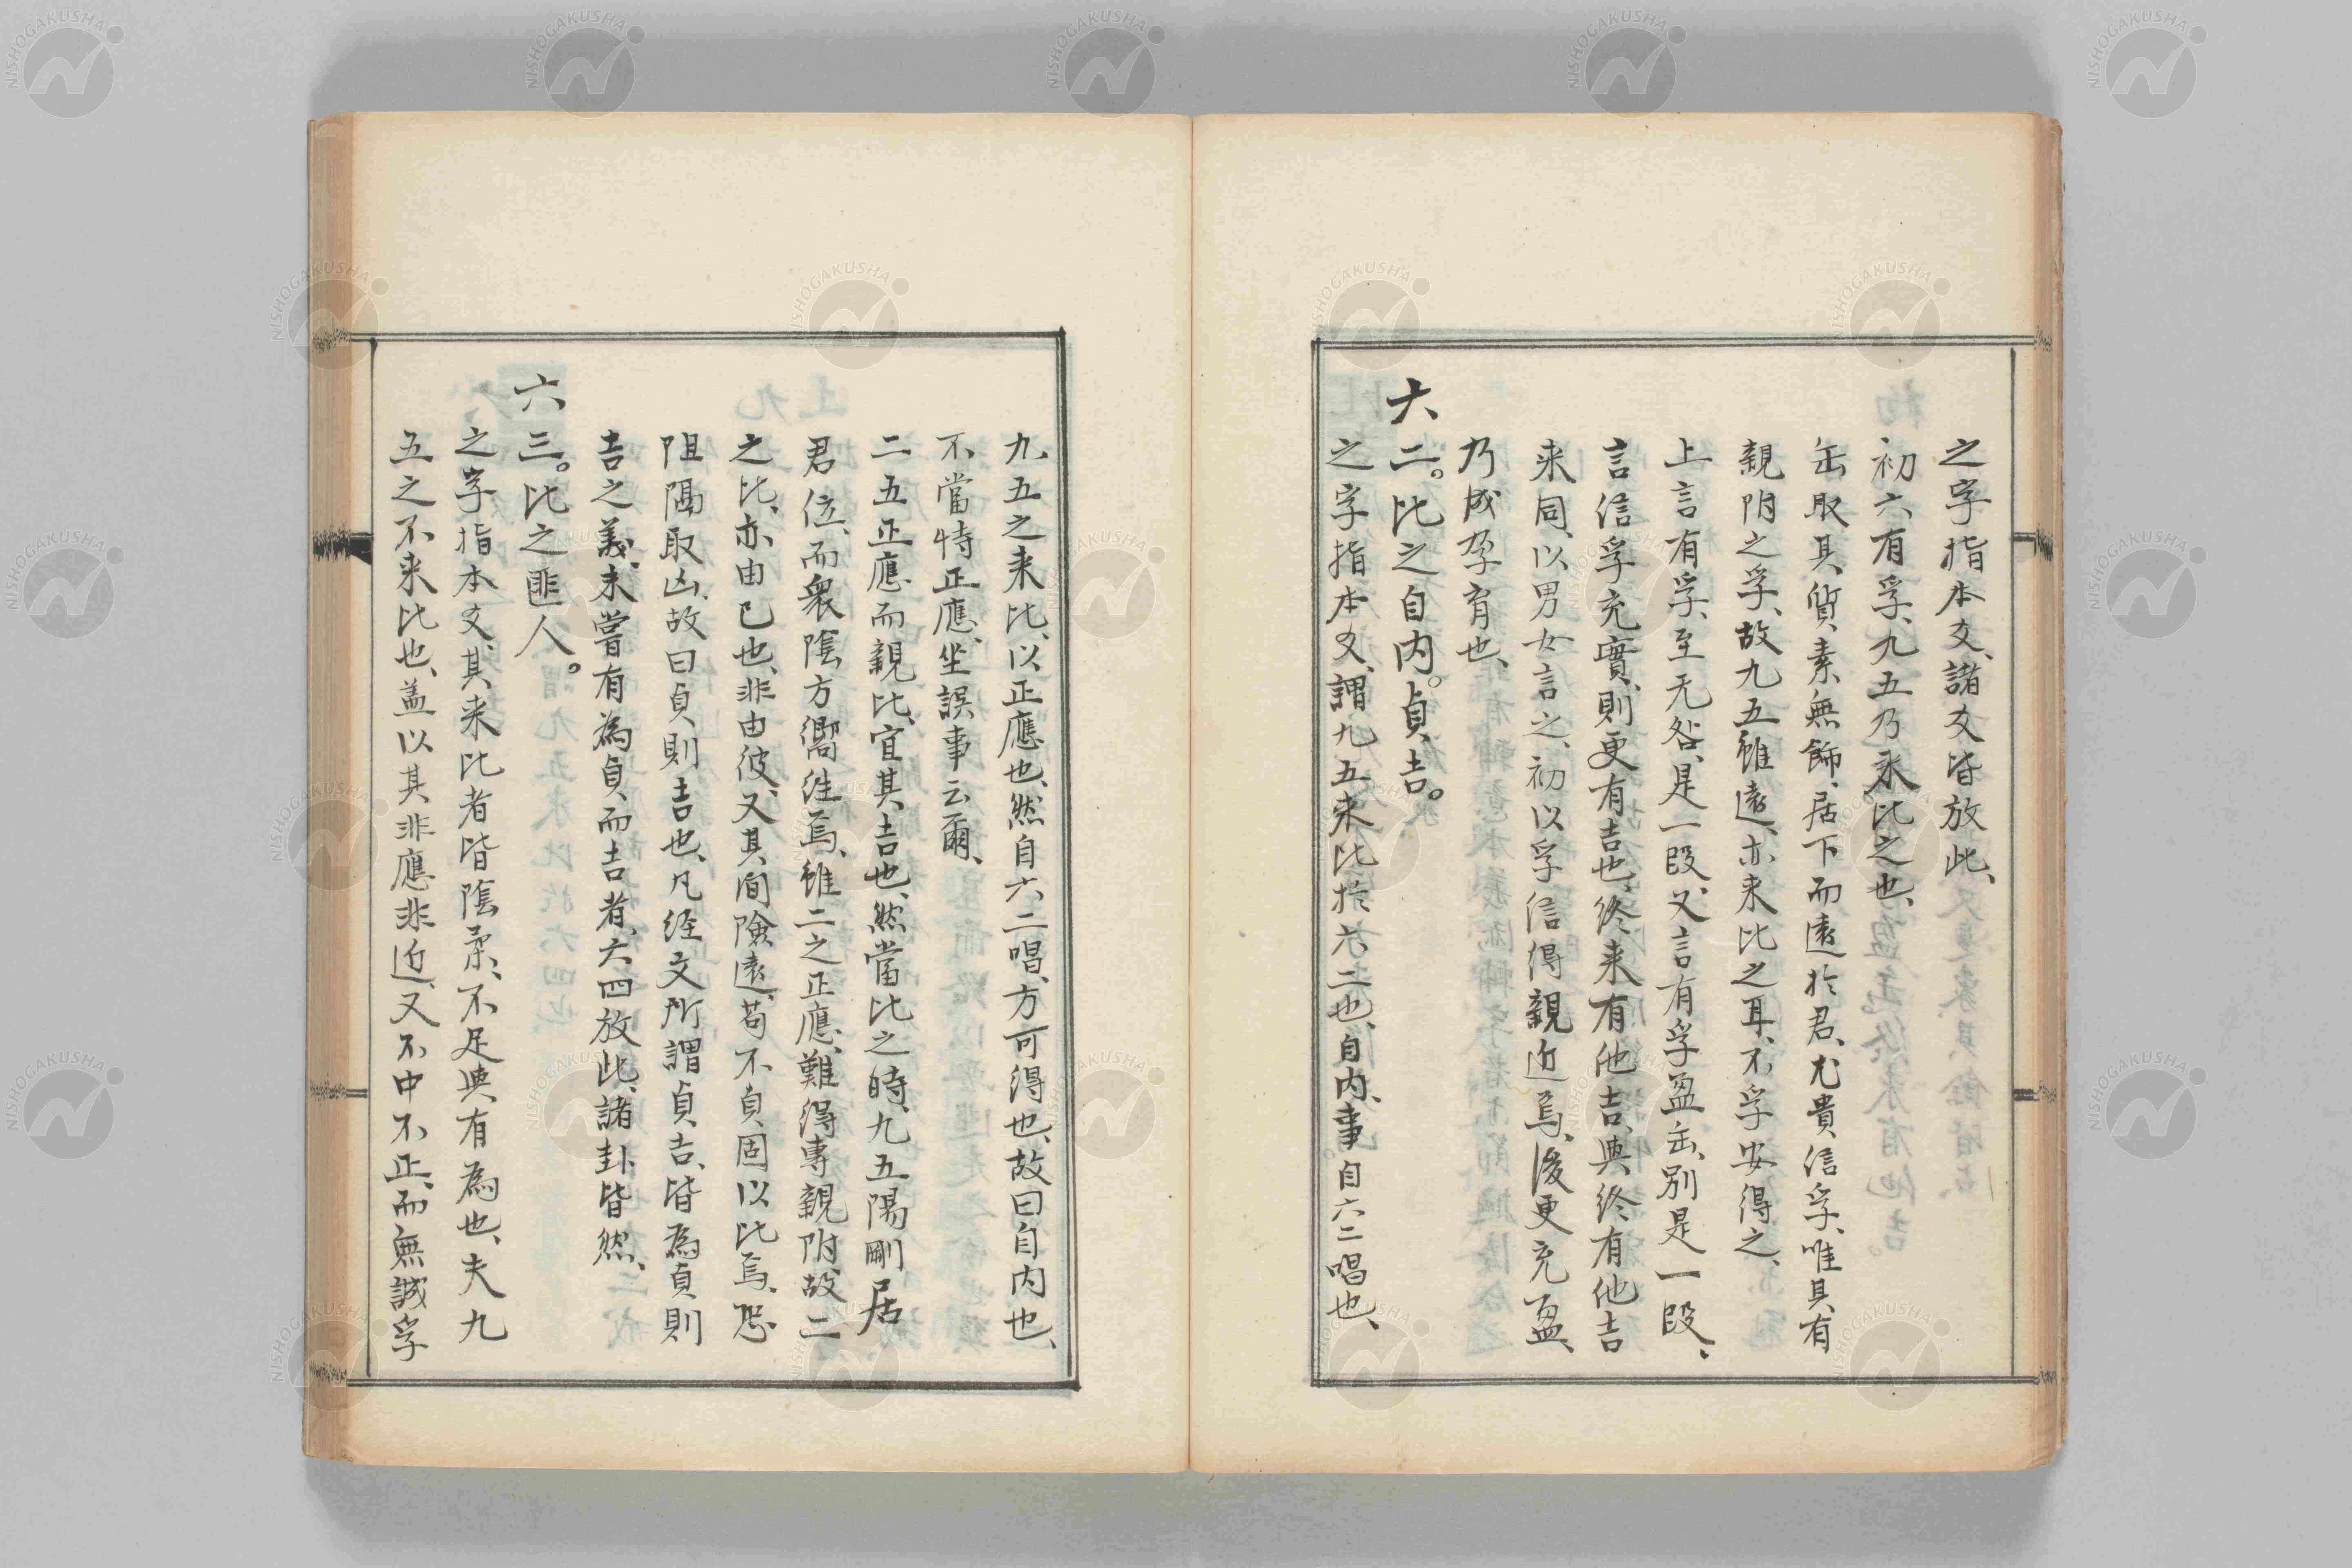 之字指本爻、諸爻皆放此、
初六有孚、九五乃来比之也、
缶取其質素無飾、居下而遠於君、尤貴信孚、唯其有
親附之孚、故九五雖遠、亦来比之耳、不孚安得之、
上言有孚、至无咎、是一段、又言有孚盈缶、別是一段、
言信孚充實、則更有吉也、終来有他吉、與終有他吉
来同、以男女言之、初以孚信得親近焉、後更充盈、
乃成孕育也、
六二。比之自内。貞吉。
之字指本爻、謂九五来比於六二也、自内、事自六二唱也、
九五之来比、以正應也、然自六二唱、方可得也、故曰自内也、
不當特正應、坐誤事云爾、
二五正應而親比、宜其吉也、然當比之時、九五陽剛居
君位、而衆陰方嚮往焉、雖二之正應、難得專親附、故二
之比、亦由已也、非由彼、又其間險遠、苟不貞固以比焉、恐
阻隔取凶、故曰貞則吉也、凡経文所謂貞吉、皆為貞則
吉之義、未嘗有為貞而吉者、六四放此、諸卦皆然、
六三。比之匪人。
之字指本爻、其来比者皆陰柔、不足與有為也、夫九
五之不来比也、盖以其非應非近、又不中不正、而無誠孚